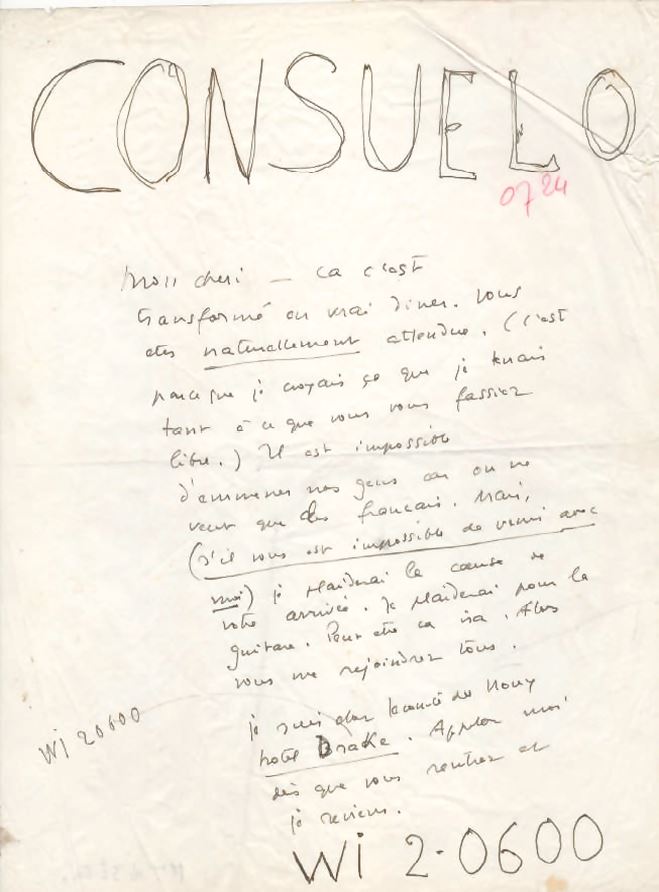 CONSUELO
07 24
Mon cheri — ca c'est
transformé en vrai diner. Vous
etes naturellement attendue. (c'est
parce que je croyais ce que je tenais
tant à ce que vous vous fassiez
libre.) Il est impossible
d'emmener nos gens car on ne
veut que des francais. Mais,
(s'il vous est impossible de venir avec
moi) je plaiderai la cause de
votre arrivée. Je plaiderai pour la
guitare. Peut etre ca ira. Alors
vous me rejoindrez tous.
je suis chez de
hotel Drake. Appelez moi
dès que vous rentrez et
je reviens.
WI 20600
WI 2-0600